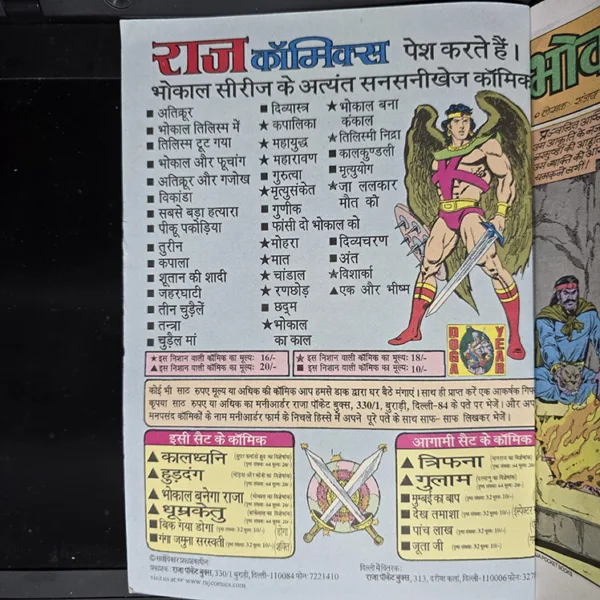 राज कॉमिक्स पेश करते हैं।
भोकाल सीरीज के अत्यंत सनसनीखेज कॉमिक
■ अतिक्रूर
■ भोकाल तिलिस्म में
■ तिलिस्म टूट गया
■ भोकाल और फूचांग
■ अतिक्रूर और गजोख
■ विकांडा
■ सबसे बड़ा हत्यारा
■ पीकू पकोड़िया
■ तुरीन
■ कपाला
■ शूतान की शादी
■ जहरघाटी
■ तीन चुड़ैलें
■ तन्त्रा
■ चुड़ैल मां
■ दिव्यास्त्र
★ कपालिका
★ महायुद्ध
★ महारावण
■ गुरुत्वा
★ मृत्युसंकेत
■ गुणीक
■ फांसी दो भोकाल को
★ मोहरा
★ मात
★ चांडाल
★ रणछोड़
■ छद्म
★ भोकाल
का काल
★ भोकाल बना
कंकाल
★ तिलिस्मी निद्रा
■ कालकुण्डली
■ मृत्युयोग
★ जा ललकार
मौत को
■ दिव्यचरण
■ अंत
★ विशाका
▲ एक और भीष्म
DOGA YEAR
★ इस निशान वाली कॉमिक का मूल्य: 16/-
▲ इस निशान वाली कॉमिक का मूल्य: 20/-
★ इस निशान वाली कॉमिक का मूल्य: 18/-
■ इस निशान वाली कॉमिक का मूल्य: 10/-
कोई भी साठ रुपए मूल्य या अधिक की कॉमिक आप हमसे डाक द्वारा घर बैठे मंगाएं। साथ ही प्राप्त करें एक आकर्षक गिफ
कृपया साठ रुपए या अधिक का मनीआर्डर राजा पॉकेट बुक्स, 330/1, बुराड़ी, दिल्ली-84 के पते पर भेजें। और अप
मनपसंद कॉमिकों के नाम मनीआर्डर फार्म के निचले हिस्से में अपने पूरे पते के साथ साफ-साफ लिखकर भेजें।
इसी सैट के कॉमिक
▲ कालध्वनि
▲ हुड़दंग
▲ भोकाल बुनेगा राजा
▲ धूम्रकेतु
■ बिक गया डोगा
■ गंगा जमुना सरस्वती
आगामी सैट के कॉमिक
▲ त्रिफना
▲ गुलाम
■ मुम्बई का बाप
■ देख तमाशा
■ पांच लाख
■ जूता जी
© सर्वाधिकार प्रकाशकाधीन
प्रकाशक: राजा पॉकेट बुक्स, 330/1 बुराड़ी, दिल्ली-110084 फोन: 7221410
visit us at www.rajcomics.com
दिल्ली में वितरक:
राजा पॉकेट बुक्स, 313, दरीबा कलां, दिल्ली-110006 फोन: 327